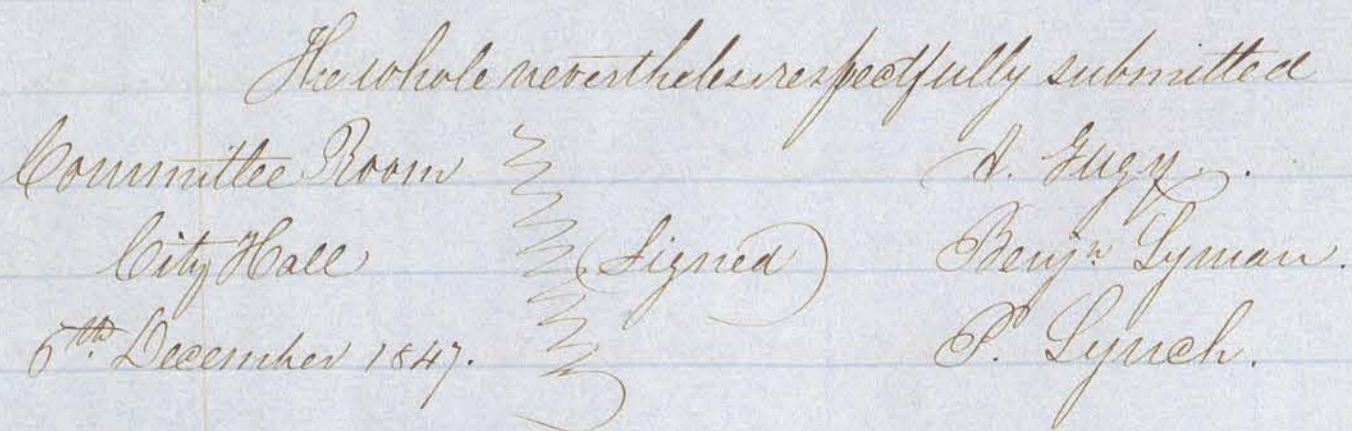 The whole nevertheless respectfully submitted
Committee Room
City Hall
6th December 1847.
(Signed)
A. Gugy.
Benjn Lyman.
P. Lynch.